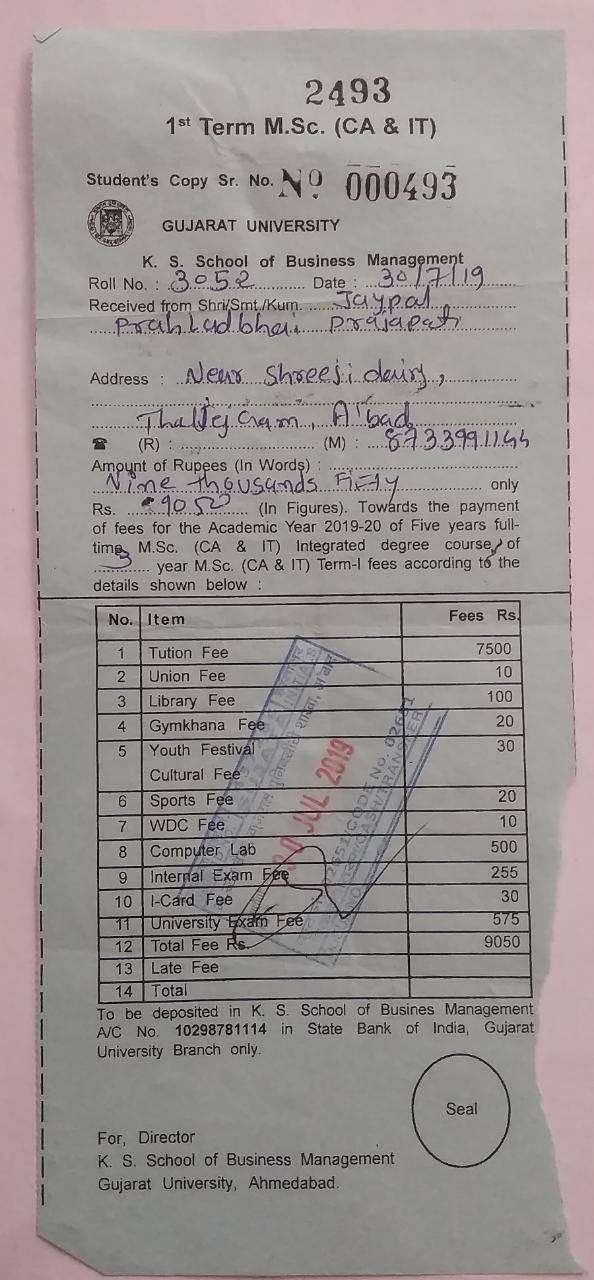 2493
1st Term M.Sc. (CA & IT)
Student's Copy Sr. No. No 000493
GUJARAT UNIVERSITY
K. S. School of Business Management
Roll No. : 3052 Date : 30/7/19
Received from Shri/Smt./Kum. Jaypal
Prahladbhai Prajapati
Address : Near Shreeji dairy,
Thaltej Gram, A'bad
(R) : (M) : 8733991144
Amount of Rupees (In Words) :
Nine thousands Fifty only
Rs. 9050 (In Figures). Towards the payment
of fees for the Academic Year 2019-20 of Five years full-
time M.Sc. (CA & IT) Integrated degree course, of
3 year M.Sc. (CA & IT) Term-I fees according to the
details shown below :
No. Item Fees Rs.
1 Tution Fee 7500
2 Union Fee 10
3 Library Fee 100
4 Gymkhana Fee 20
5 Youth Festival 30
Cultural Fee
6 Sports Fee 20
7 WDC Fee 10
8 Computer Lab 500
9 Internal Exam Fee 255
10 I-Card Fee 30
11 University Exam Fee 575
12 Total Fee Rs. 9050
13 Late Fee
14 Total
30 JUL 2019
To be deposited in K. S. School of Busines Management
A/C No. 10298781114 in State Bank of India, Gujarat
University Branch only.
Seal
For, Director
K. S. School of Business Management
Gujarat University, Ahmedabad.